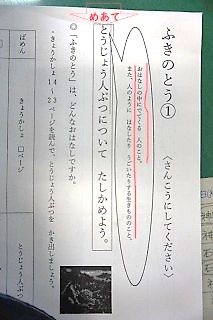 ふきのとう①
〈さんこうにしてください〉
おはなしの中にでてくる 人のこと。
また、人のように はなしたり うごいたりする生きもののこと。
めあて
とうじょう人ぶつについて たしかめよう。
◎「ふきのとう」は、どんなおはなしですか。
・きょうかしょ14～23ページを読んで、とうじょう人ぶつを かき出しましょう。
ばめん
きょうかしょ □ページ
とうじょう人ぶつ